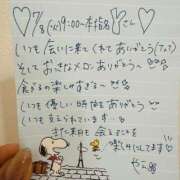 7/8(火)9:00〜本指名
いつも会いに来てくれてありがとう
そして おっきなメロン ありがとう〜
食べるの楽しみすぎる〜
いつも優しい時間をありがとう
いつも支えられています
また来月も会えることを
楽しみにしてます